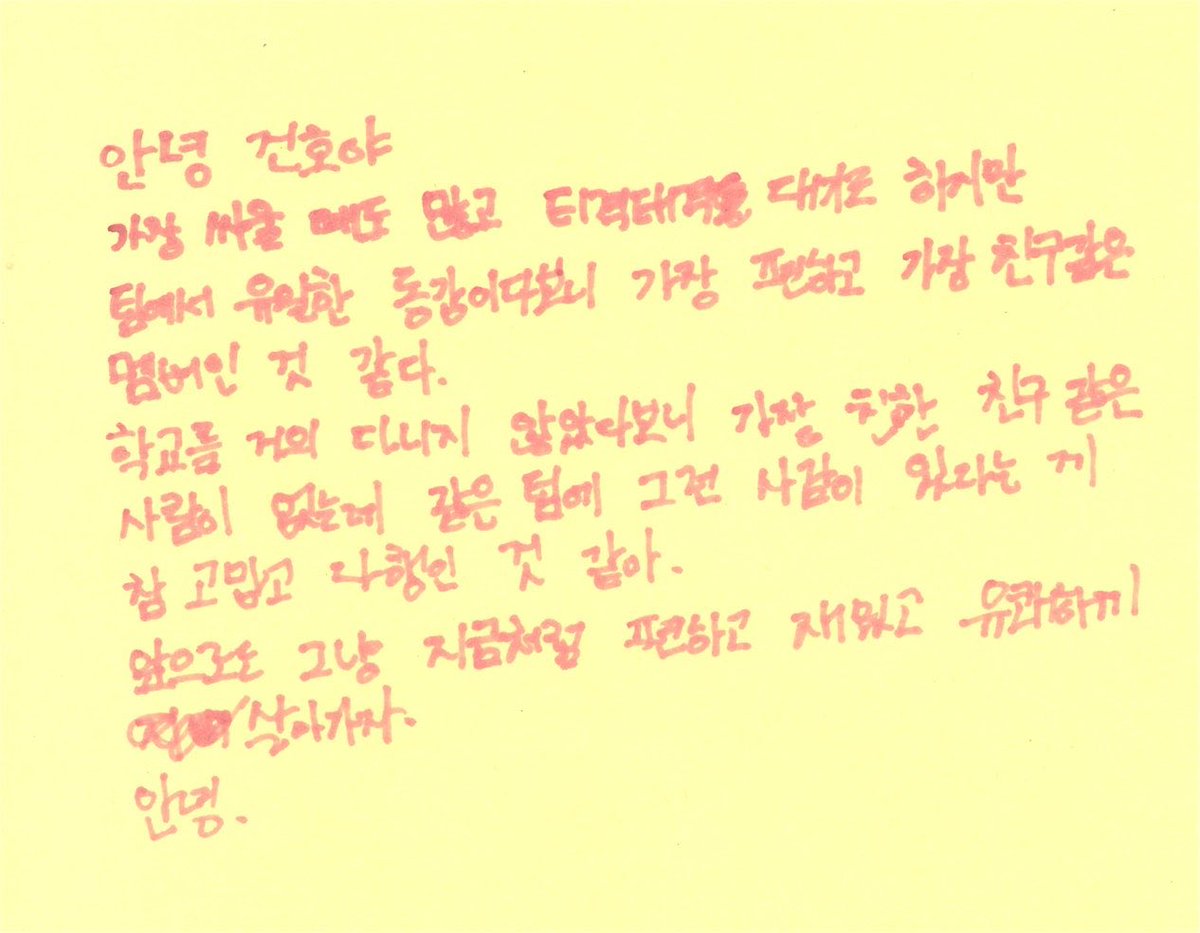 안녕 건호야
가장 싸울 때도 많고 티격태격을 대기도 하지만
팀에서 유일한 동갑이다보니 가장 편하고 가장 친구같은
멤버인 것 같다.
학교를 거의 다니지 않았다보니 가장 친한 친구 같은
사람이 없는데 같은 팀에 그런 사람이 있다는 게
참 고맙고 다행인 것 같아.
앞으로도 그냥 지금처럼 편하고 재밌고 유쾌하게
살아가자.
안녕.